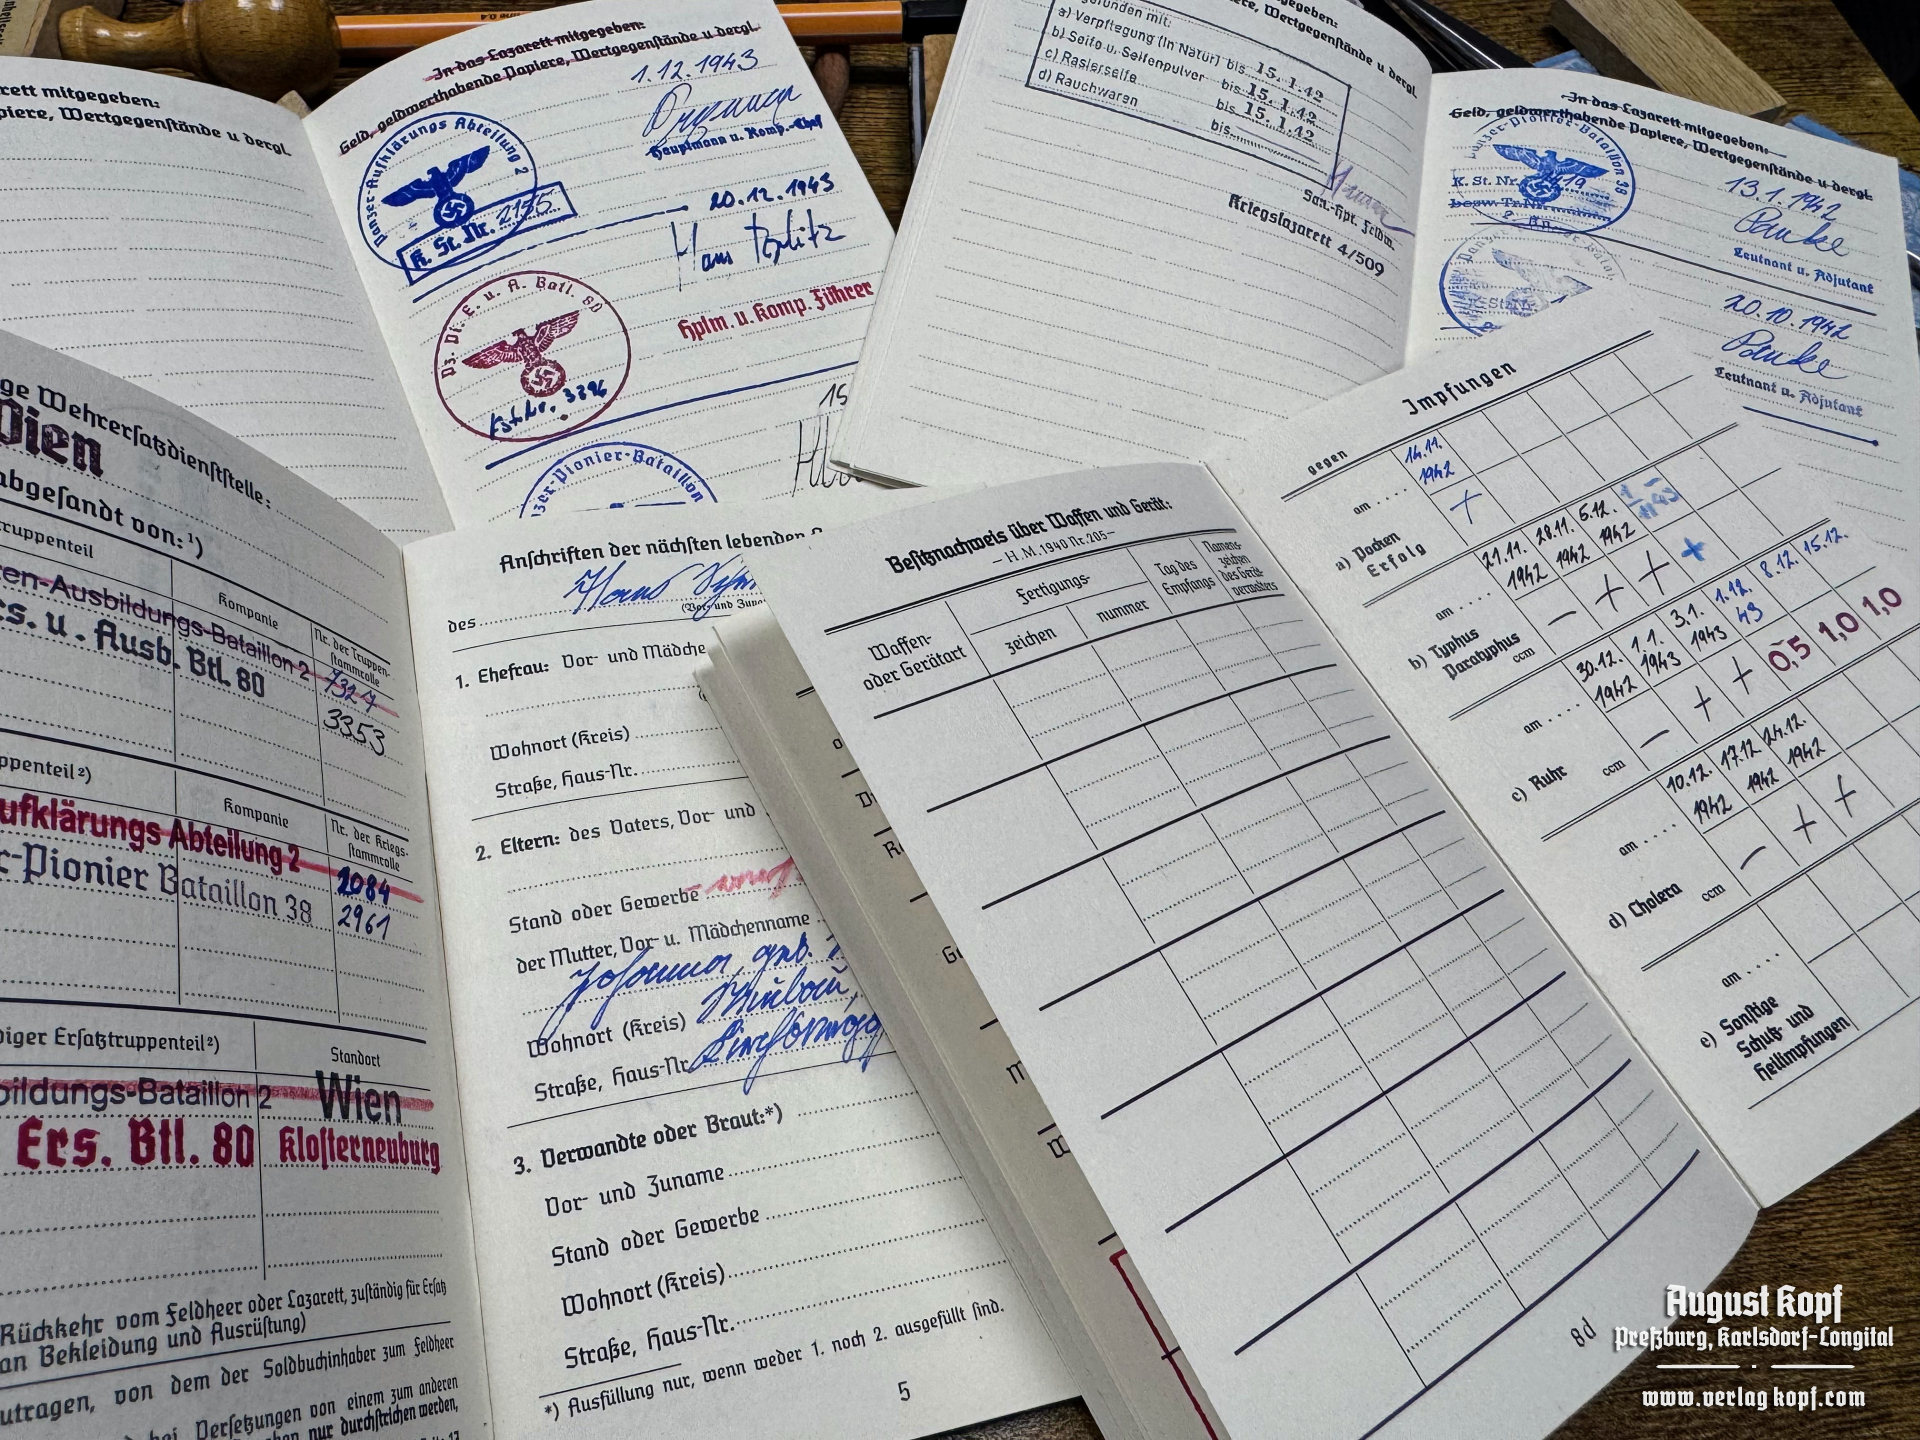 rett mitgegeben:
piere, Wertgegenstände u dergl.
In das Lazarett mitgegeben:
Geld, geldwerthabende Papiere, Wertgegenstände u dergl.
1.12.1943
Hauptmann u. Komp.-Chef
Panzer-Aufklärungs Abteilung 2
K. St. Nr. 2155
20.12.1943
Hptm. u. Komp. Führer
Pz. Pi. E. u. A. Batl. 80
3296
15
nzer-Pionier-Bataillon
gefunden mit:
a) Verpflegung (in Natur) bis 15.1.42
b) Seife u. Seifenpulver bis 15.1.42
c) Rasierseife bis 15.1.42
d) Rauchwaren bis
piere, Wertgegenstände u dergl.
San.-Hpt. Feldw.
Kriegslazarett 4/509
In das Lazarett mitgegeben:
Geld, geldwerthabende Papiere, Wertgegenstände u dergl.
Panzer-Pionier-Bataillon 38
K. St. Nr.
13.1.1942
Panke
Leutnant u. Adjutant
20.10.1942
Panke
Leutnant u. Adjutant
ge Wehrersatzdienststelle:
Wien
abgesandt von:¹)
truppenteil
Kompanie
Nr. der Truppen-
stammrolle
en-Ausbildungs-Bataillon 2
rs. u. Ausb. Btl. 80
3353
ppenteil²)
Kompanie
Nr. der Kriegs-
stammrolle
ufklärungs Abteilung 2
2084
r-Pionier Bataillon 38
2961
diger Ersatztruppenteil²)
Standort
bildungs-Bataillon 2
Wien
Ers. Btl. 80
Klosterneuburg
Rückkehr vom Feldheer oder Lazarett, zuständig für Ersatz
an Bekleidung und Ausrüstung)
utragen, von dem der Soldbuchinhaber zum Feldheer
bei Versetzungen von einem zum anderen
nur durchstrichen werden,
Anschriften der nächsten lebenden
des
(Vor- und Zuna
1. Ehefrau: Vor- und Mädche
Wohnort (Kreis)
Straße, Haus-Nr.
2. Eltern: des Vaters, Vor- und
Stand oder Gewerbe
der Mutter, Vor- u. Mädchenname
Johanna, geb.
Wohnort (Kreis)
Straße, Haus-Nr.
3. Verwandte oder Braut:*)
Vor- und Zuname
Stand oder Gewerbe
Wohnort (Kreis)
Straße, Haus-Nr.
*) Ausfüllung nur, wenn weder 1. noch 2. ausgefüllt sind.
5
Besitznachweis über Waffen und Gerät:
— H. M. 1940 Nr. 205 —
Waffen-
oder Gerätart
Fertigungs-
zeichen
nummer
Tag des
Empfangs
Namens-
zeichen
des Gerät-
verwalters
8d
Impfungen
gegen
am . . . .
14.11.
1942
a) Pocken
Erfolg
+
am . . . .
21.11. 28.11. 5.12.
1942 1942 1942
b) Typhus
Paratyphus
ccm
— + + +
am . . . .
30.12. 1.1. 3.1. 1.12. 8.12. 15.12.
1942 1943 1943 43
c) Ruhr
ccm
— + + 0,5 1,0 1,0
am . . . .
10.12. 17.12 24.12.
1942 1942 1942
d) Cholera
ccm
— + +
am . . . .
e) Sonstige
Schutz- und
Heilimpfungen
August Kopf
Preßburg, Karlsdorf-Longital
www.verlagkopf.com